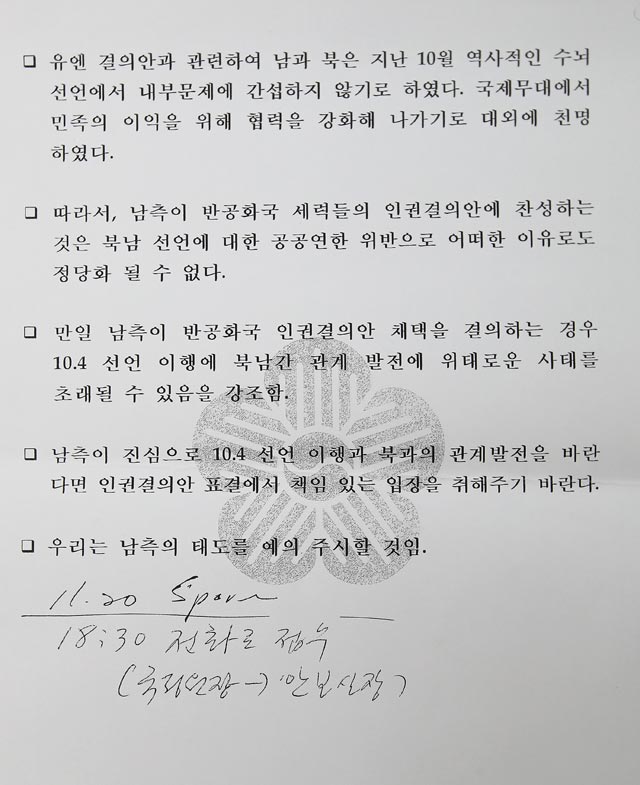 ❑ 유엔 결의안과 관련하여 남과 북은 지난 10월 역사적인 수뇌
선언에서 내부문제에 간섭하지 않기로 하였다. 국제무대에서
민족의 이익을 위해 협력을 강화해 나가기로 대외에 천명
하였다.
❑ 따라서, 남측이 반공화국 세력들의 인권결의안에 찬성하는
것은 북남 선언에 대한 공공연한 위반으로 어떠한 이유로도
정당화 될 수 없다.
❑ 만일 남측이 반공화국 인권결의안 채택을 결의하는 경우
10.4 선언 이행에 북남간 관계 발전에 위태로운 사태를
초래될 수 있음을 강조함.
❑ 남측이 진심으로 10.4 선언 이행과 북과의 관계발전을 바란
다면 인권결의안 표결에서 책임 있는 입장을 취해주기 바란다.
❑ 우리는 남측의 태도를 예의 주시할 것임.
11.20
18:30 전화로 접수
(국정원장→안보실장)